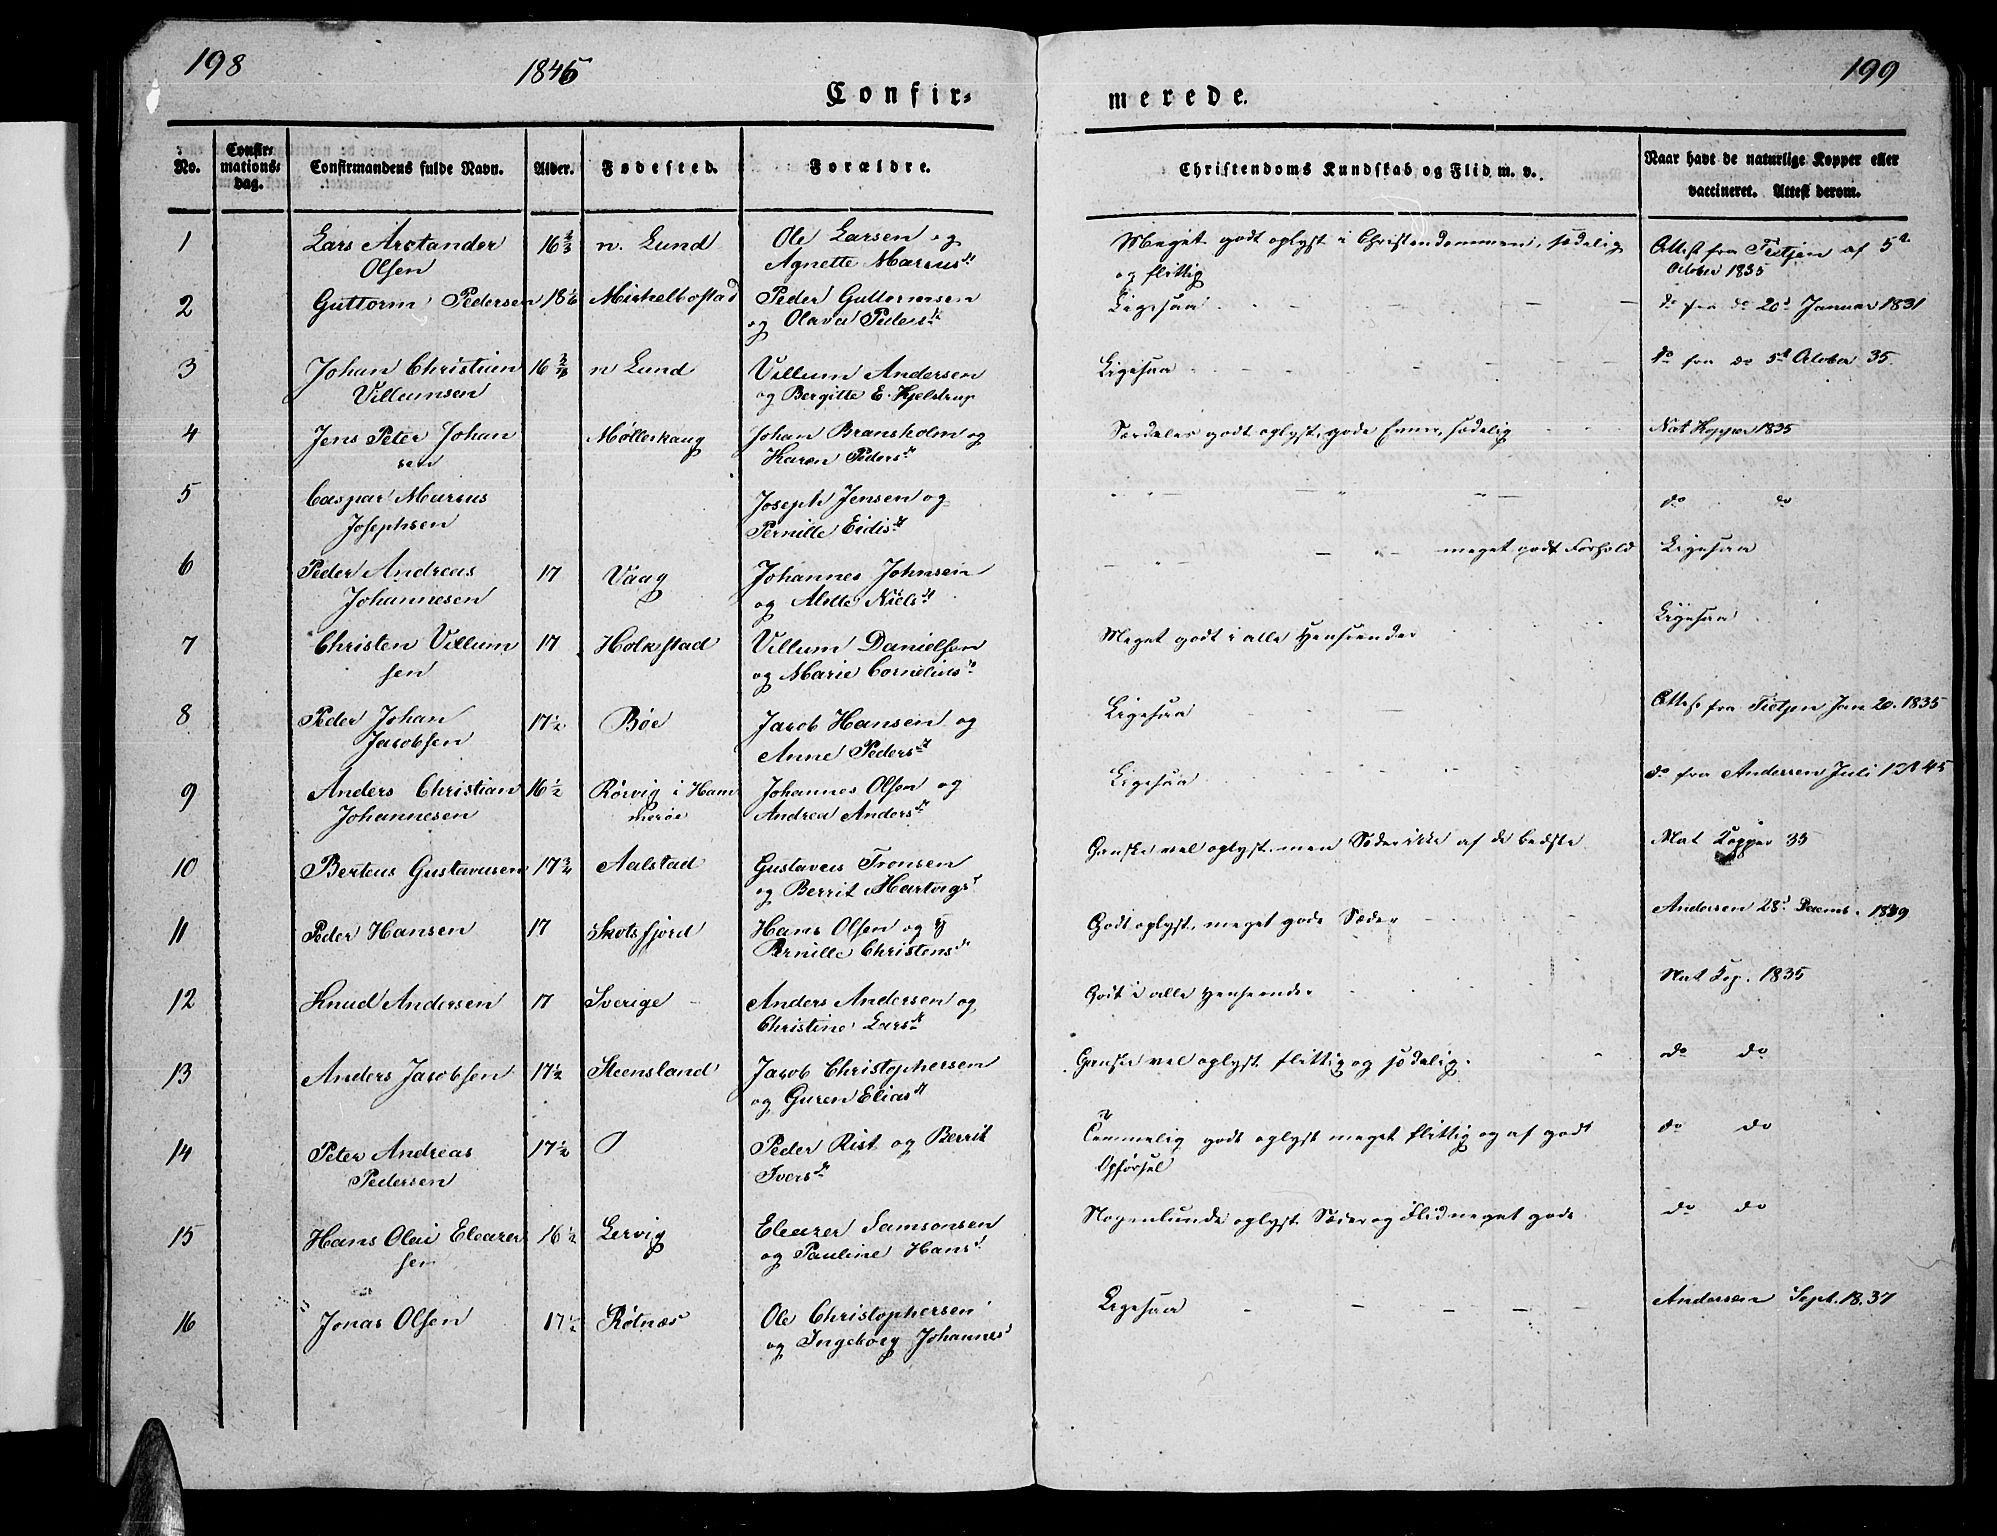 198 1846
Confir-
merede.
199
No. Confir-mations-dag. Confirmandens fulde Navn. Alder. Fødested. Forældre. Christendoms Kundskab og Flid m. v. Naar havt de naturlige Kopper eller vaccineret. Attest derom.
1 Lars Arctander 16 2/3 n. Lund Ole Larsen og Meget godt oplyst i Christendommen, sædelig Attest fra Tietjen af 5t
Olsen Agnette Marcusdr og flittig October 1835
2 Guttorm Pedersen 18 Mickelbostad Peder Guttormsen Ligesaa do fra do 20d Januar 1831
og Olava Pedersdr
3 Johan Christian 16 n Lund Villum Andersen Ligesaa do fra do 5t October 35
Villumsen og Bergitte E. Kjelstrup
4 Jens Peter Johan Møllerkaug Johan Bransholm og Særdeles godt oplyst, gode Evner, sædelig Nat Kopper 1835
sen Karen Pedersdr
5 Caspar Marius Joseph Jensen og do do
Josephsen Pernille Eidisdr
6 Peder Andreas 17 Vaag Johannes Johnsen meget godt Forhold Ligesaa
Johannesen og Mette Nielsdr
7 Christen Villum 17 Holkstad Villum Danielsen Meget godt i alle Henseender Ligesaa
sen og Marie Corneliusdr
8 Peder Johan 17 1/2 Bøe Jacob Hansen og Ligesaa Attest fra Tietjen Jan 20. 1835
Jacobsen Anne Pedersdr
9 Anders Christian 16 1/2 Rørvig i Ham Johannes Olsen og Ligesaa do fra Andersen Juli 1845
Johannesen merøe Andrea Andersdr
10 Berteus Gustavusen 17 3/4 Aalstad Gustaveus Tronsen Ganske vel oplyst men Sæder ikke af de bedste Nat Kopper 35
og Berrit Hartvigsd
11 Peder Hansen 17 Skotsfjord Hans Olsen og Godt oplyst, meget gode Sæder Andersen 28d Decemb. 1839
Pernille Christensdr
12 Knud Andersen 17 Sverige Anders Andersen og Godt i alle Henseender Nat Kop. 1835
Christine Larsdr
13 Anders Jacobsen 17 1/2 Steensland Jacob Christophersen Ganske vel oplyst flittig og sædelig. do do
og Guren Eliasdr
14 Peter Andreas 17 1/2 Peder Rist og Berrit Temmelig godt oplyst meget flittig og af godt do do
Pedersen Iversdr Opførsel
15 Hans Olai Eleazer 16 1/2 Lervig Eleazer Samsonsen Nogenlunde oplyst Sæder og Flid meget gode. do do
sen og Pauline Hansd
16 Jonas Olsen 17 1/2 Rotnæs Ole Christophersen Ligesaa Andersen Sept. 18. 37
og Ingeborg Johannesd